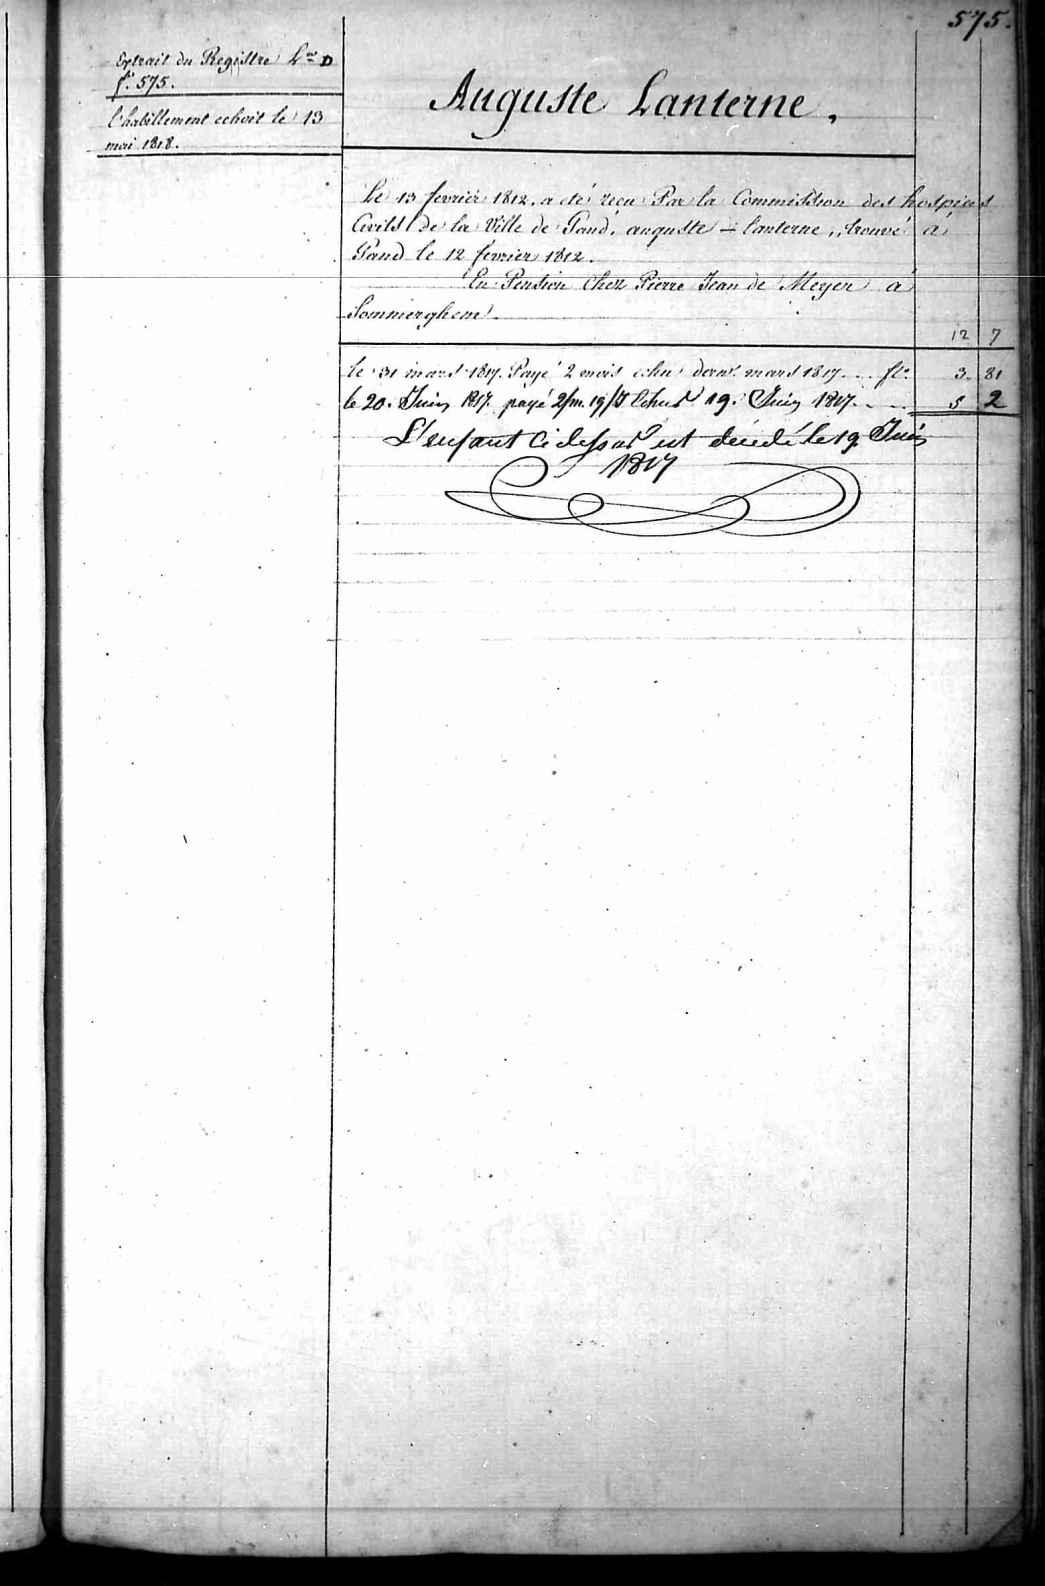 575.
Extrait du Registre L.re D
f.o 575.
l'habillement echoit le 13
mai 1818.
Auguste Lanterne.
Le 13 fevrier 1812. a eté recu Par la Commission des hospices
Civils de la Ville de Gand, auguste - lanterne,, trouvé à
Gand le 12 fevrier 1812.
En Pension Chez Pierre Jean de Meyer à
Sommerghem.
12 7
le 31 mars 1817. Payé 2 mois echu dern.r mars 1817 ... fl. 3. 81
le 20. Juin 1817. payé 2/m. 19/J Echus 19. Juin 1817. . . . 5 2
L'enfant Ci dessus est décédé le 19 Juin
1817